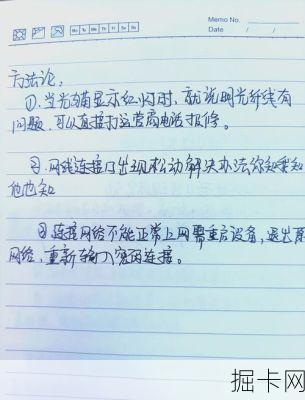 Memo No.
Mo Tu We Th Fr Sa Su
Date / /
方法论:
①.当光猫显示红灯时,就说明光纤线有
问题,可以直接打运营商电话报修。
②.网线连接口出现松动解决办法你知我知
他也知
③连接网络不能正常上网需重启设备,退出原
网络,重新输入密码连接。
掘卡网